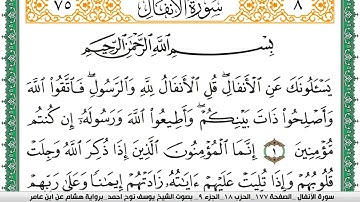 ٧٥ سورة الأنفال ٨
بِسْمِ اللَّهِ الرَّحْمَٰنِ الرَّحِيمِ
يَسْـَٔلُونَكَ عَنِ الْأَنفَالِ ۖ قُلِ الْأَنفَالُ لِلَّهِ وَالرَّسُولِ ۖ فَاتَّقُوا اللَّهَ
وَأَصْلِحُوا ذَاتَ بَيْنِكُمْ ۖ وَأَطِيعُوا اللَّهَ وَرَسُولَهُ إِن كُنتُم
مُّؤْمِنِينَ ١ إِنَّمَا الْمُؤْمِنُونَ الَّذِينَ إِذَا ذُكِرَ اللَّهُ وَجِلَتْ
قُلُوبُهُمْ وَإِذَا تُلِيَتْ عَلَيْهِمْ ءَايَٰتُهُ زَادَتْهُمْ إِيمَٰنًا وَعَلَىٰ رَبِّهِمْ
سورة الانفال الصفحة ١٧٧ الحزب ١٨ الجزء ٩ بصوت الشيخ يوسف نوح احمد برواية هشام عن ابن عامر